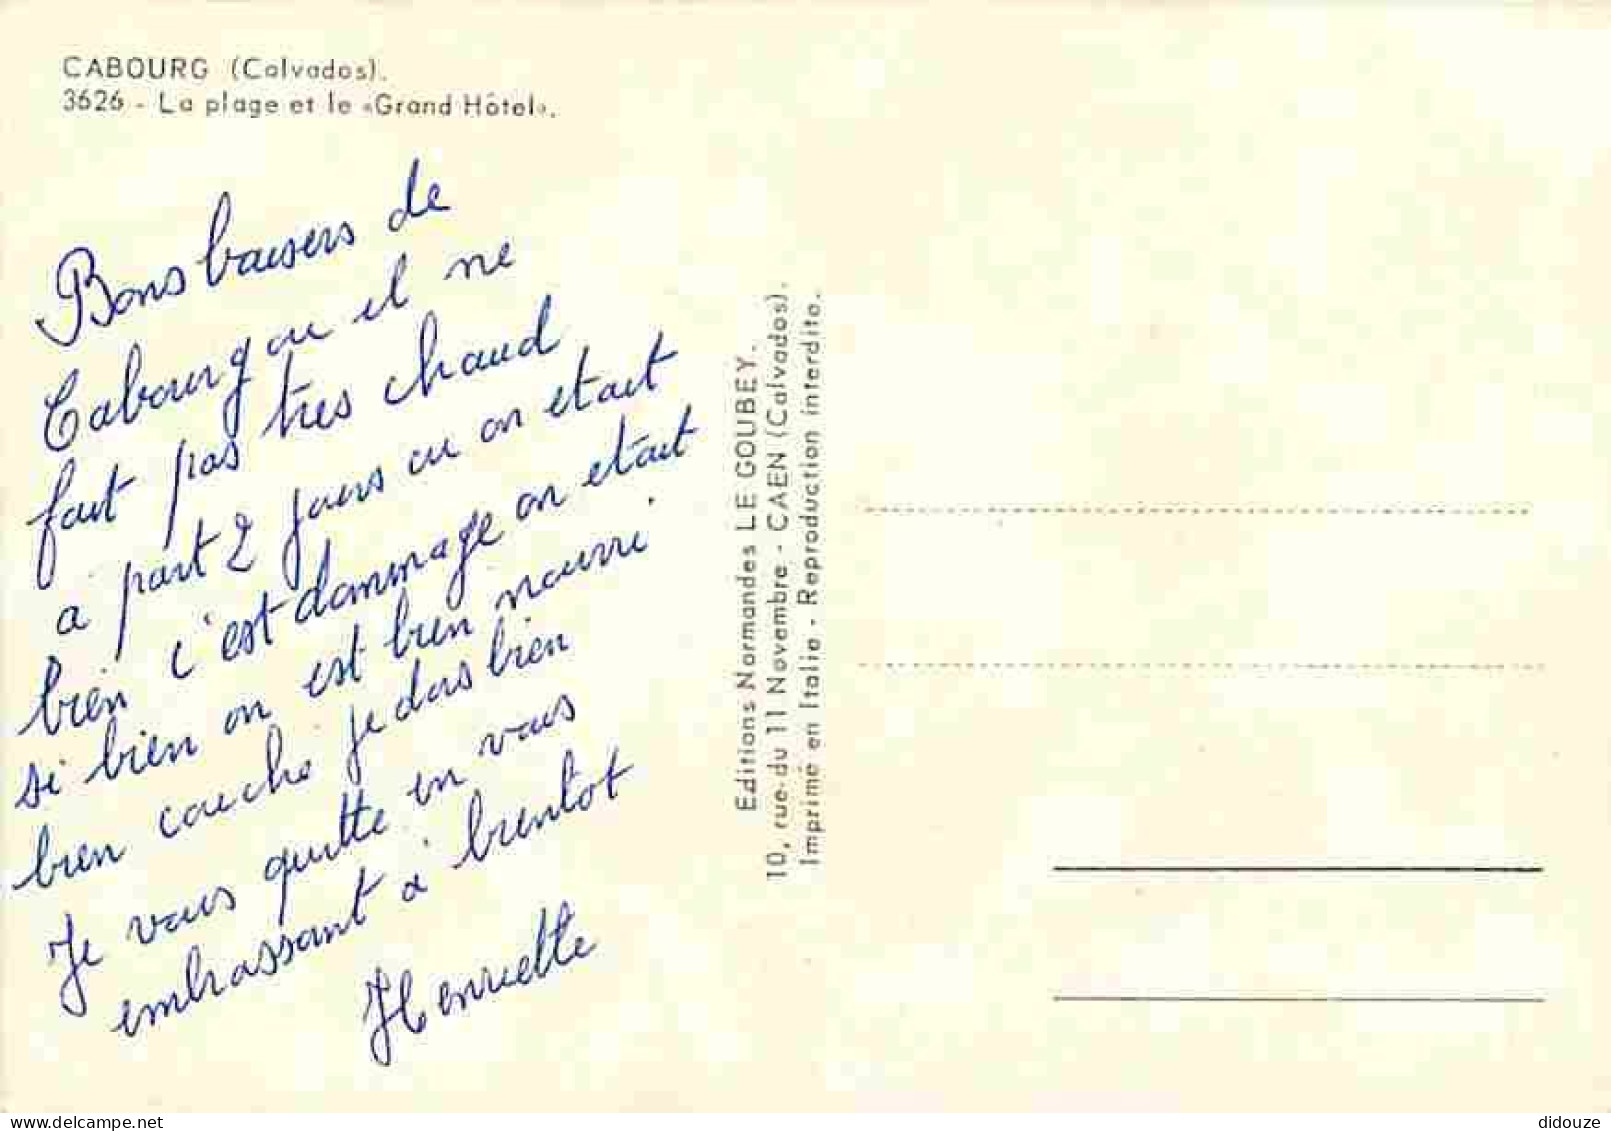 CABOURG (Calvados).
3626 - La plage et le «Grand Hôtel».
Bons baisers de
Cabourg ou il ne
fait pas tres chaud
a part 2 jours ou on etait
bien c'est dommage on etait
si bien on est bien nourri.
bien couche je dors bien
Je vous quitte en vous
embrassant à bientot
Henriette
Editions Normandes LE GOUBEY.
10, rue du 11 Novembre - CAEN (Calvados).
Imprimé en Italie - Reproduction interdite.
delcampe.net
didouze